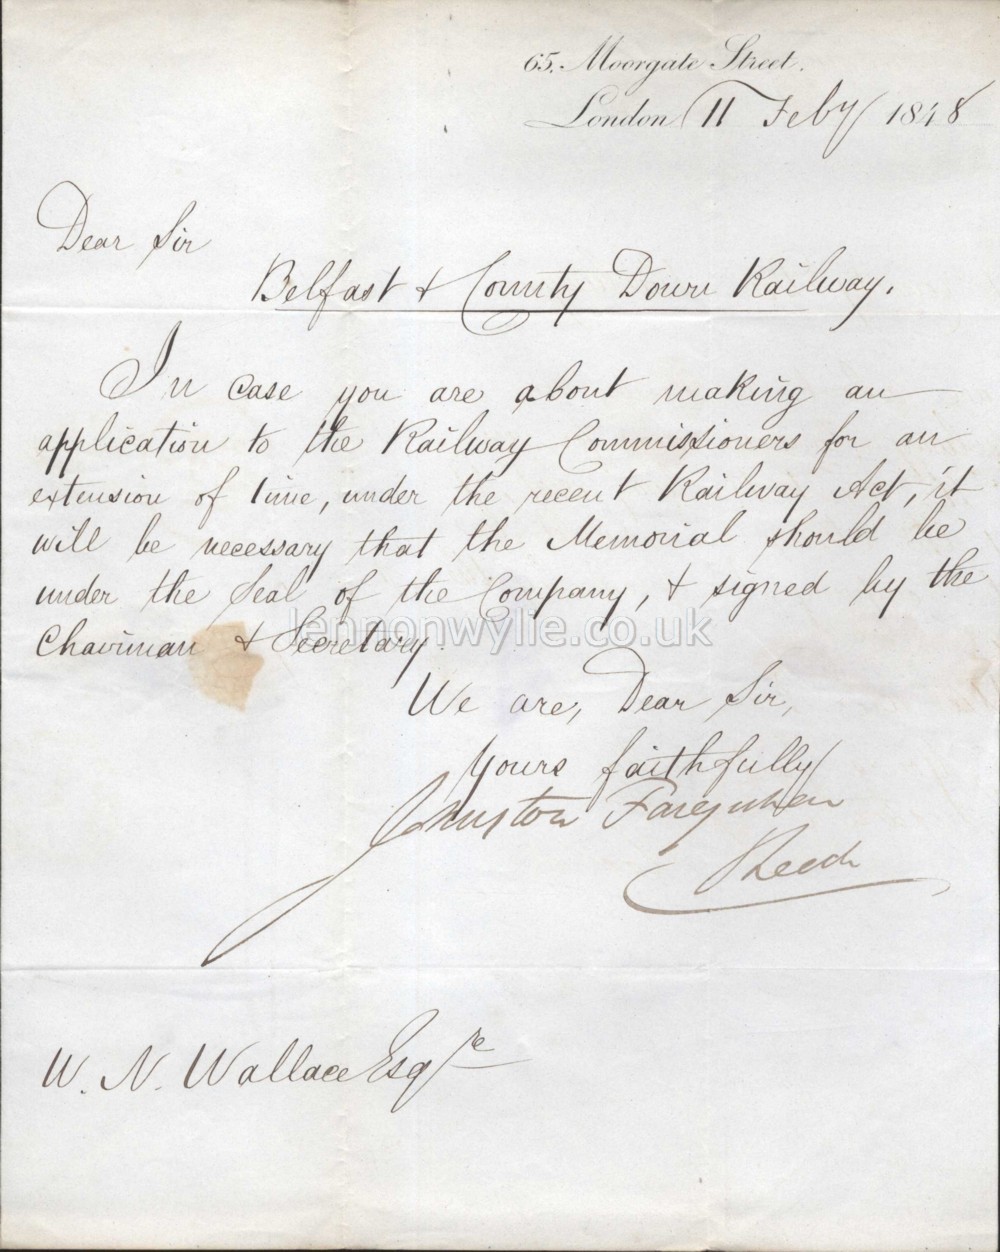 65, Moorgate Street.
London 11 Feby 1848
Dear Sir
Belfast & County Down Railway.
In case you are about making an
application to the Railway Commissioners for an
extension of time, under the recent Railway Act, it
will be necessary that the Memorial should be
under the Seal of the Company, & signed by the
Chairman & Secretary.
lennonwylie.co.uk
We are, Dear Sir,
Yours faithfully
Johnston Farquhar
Leech
W. N. Wallace Esqre